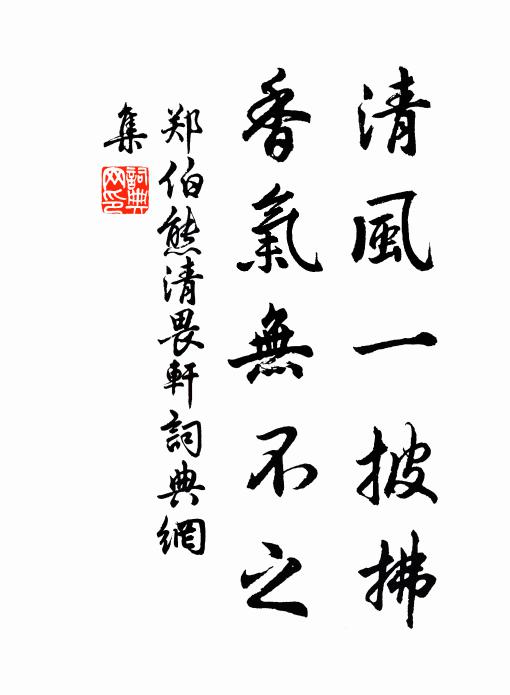 清風一披拂
香氣無不之
郑伯熊清畏軒詞典網
集
詞典网印